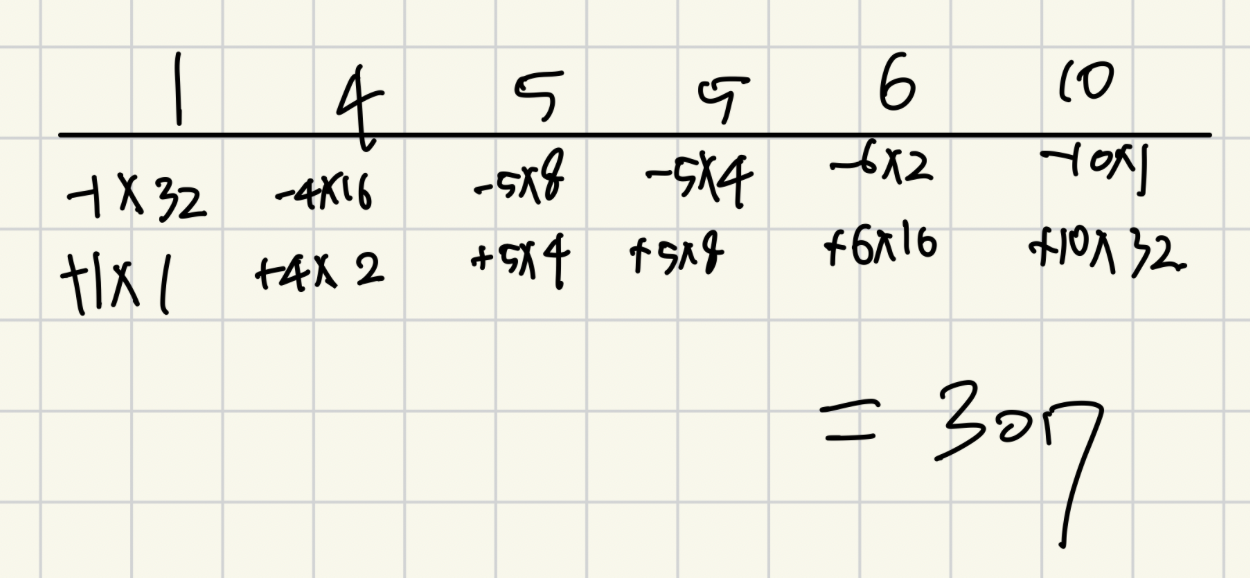 1 4 5 5 6 10
-1×32 -4×16 -5×8 -5×4 -6×2 -10×1
+1×1 +4×2 +5×4 +5×8 +6×16 +10×32
= 307